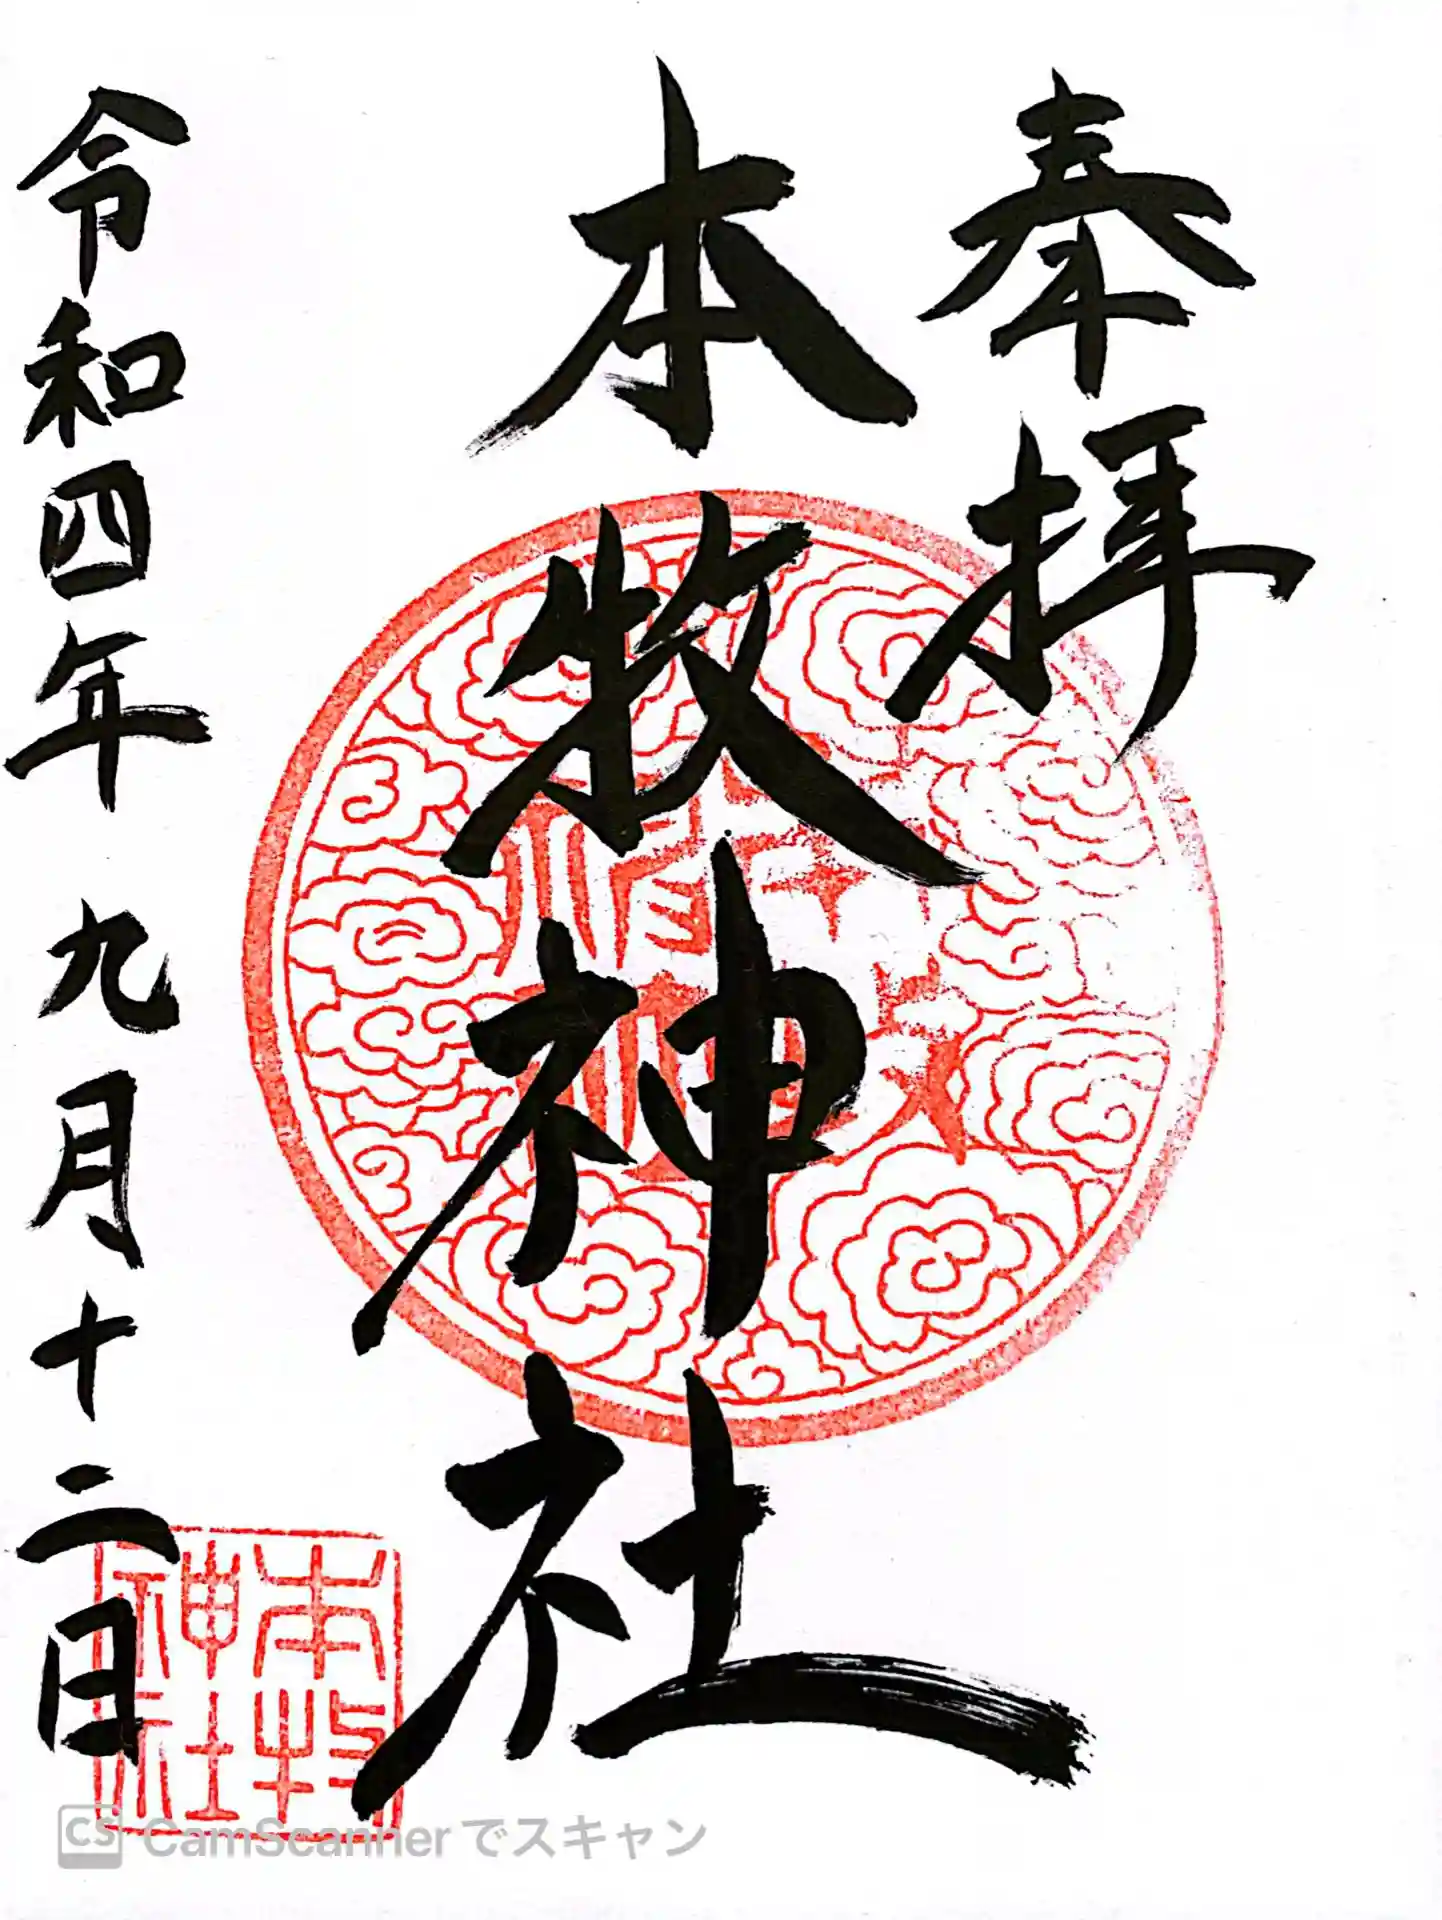 奉拝
本牧神社
令和四年九月十二日
本牧
神社
CS CamScannerでスキャン